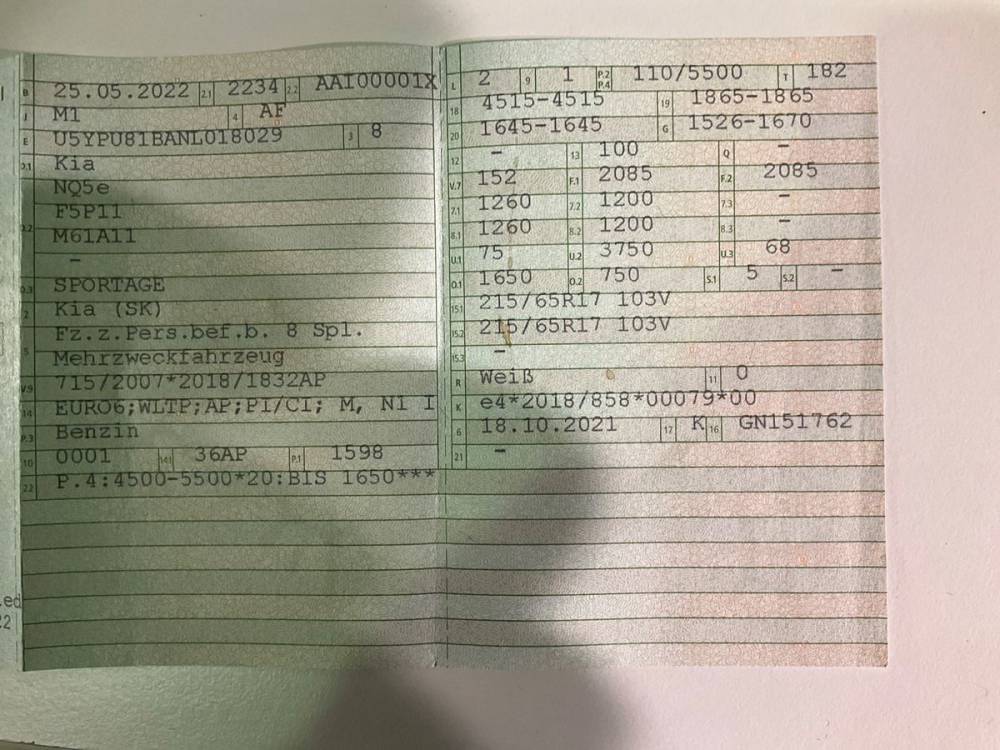 B 25.05.2022 2.1 2234 2.2 AAI00001X
J M1 4 AF
E U5YPU81BANL018029 3 8
D.1 Kia
NQ5e
D.2 F5P11
M61A11
–
D.3 SPORTAGE
2 Kia (SK)
Fz.z.Pers.bef.b. 8 Spl.
5 Mehrzweckfahrzeug
V.9 715/2007*2018/1832AP
14 EURO6;WLTP;AP;PI/CI; M, N1 I
P.3 Benzin
10 0001 14.1 36AP P.1 1598
22 P.4:4500-5500*20:BIS 1650***
L 2 9 1 P.2 P.4 110/5500 T 182
18 4515-4515 19 1865-1865
20 1645-1645 G 1526-1670
12 – 13 100 Q –
V.7 152 F.1 2085 F.2 2085
7.1 1260 7.2 1200 7.3 –
8.1 1260 8.2 1200 8.3 –
U.1 75 U.2 3750 U.3 68
O.1 1650 O.2 750 S.1 5 S.2 –
15.1 215/65R17 103V
15.2 215/65R17 103V
15.3 –
R Weiß 11 0
K e4*2018/858*00079*00
6 18.10.2021 17 K 16 GN151762
21 –